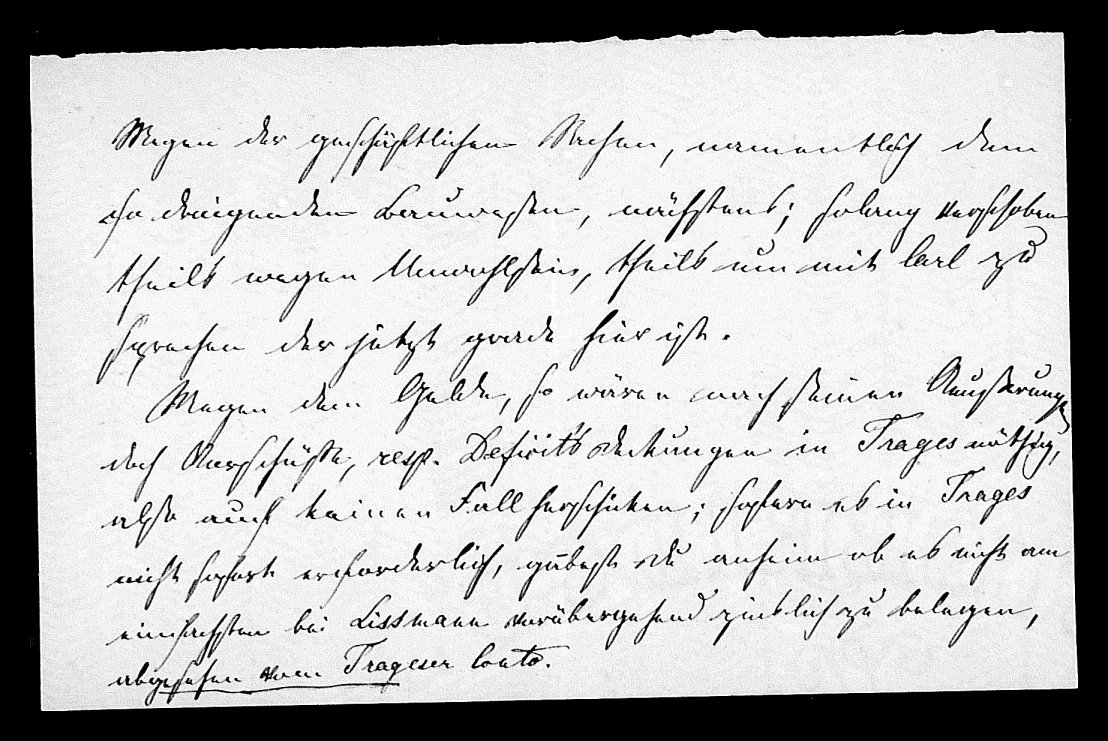 Wegen der geschäftlichen Sachen, namentlich dem
so dringenden Bauwesen, nächstens; solang verschoben
theils wegen Unwohlsein, theils um mit Carl zu
sprechen der jetzt grade hier ist.
Wegen dem Gelde, so wären nach seinen Aeußerungen
doch Vorschüsse, resp. Deficitsdeckungen in Trages nöthig,
also auf keinen Fall herschicken; sofern es in Trages
nicht sofort erforderlich, gäbest Du anheim ob es nicht am
einfachsten bei Lissmann vorübergehend zinslich zu belegen,
abgesehen vom Trageser Conto.